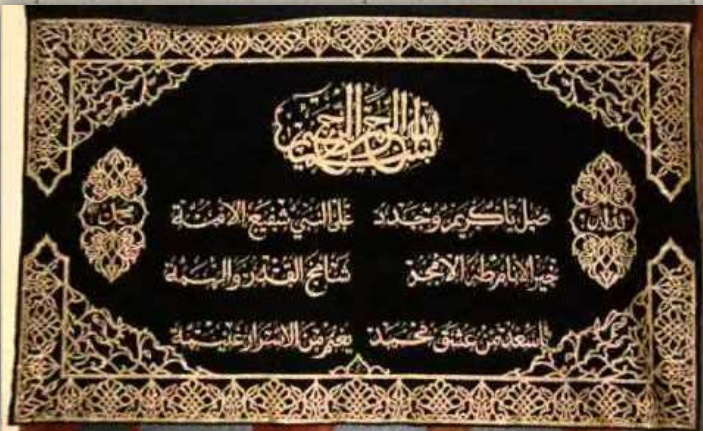 بسم الله الرحمن الرحيم
الله
محمد
صل يا كريم وجدد على النبي شفيع الأمة
خير الانام طه الامجد شامخ القدر والهمة
يا سعد من عشق محمد يغنم من الاسرار غنيمة